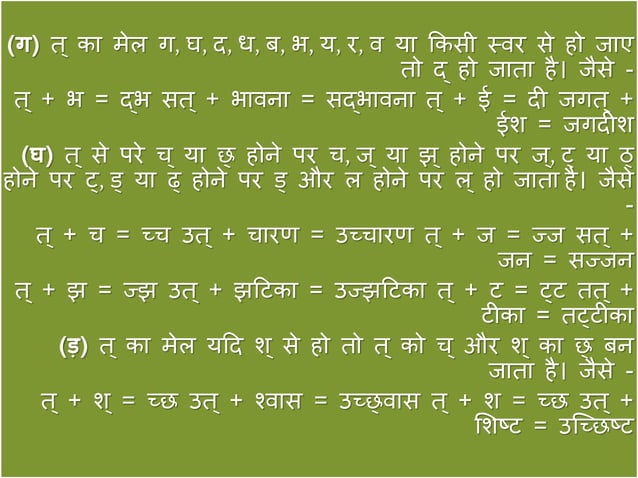 (ग) त् का मेल ग, घ, द, ध, ब, भ, य, र, व या किसी स्वर से हो जाए
तो द् हो जाता है। जैसे -
त् + भ = द्भ सत् + भावना = सद्भावना त् + ई = दी जगत् +
ईश = जगदीश
(घ) त् से परे च् या छ् होने पर च, ज् या झ् होने पर ज्, ट् या ठ्
होने पर ट्, ड् या ढ् होने पर ड् और ल होने पर ल् हो जाता है। जैसे
-
त् + च = च्च उत् + चारण = उच्चारण त् + ज = ज्ज सत् +
जन = सज्जन
त् + झ = ज्झ उत् + झटिका = उज्झटिका त् + ट = ट्ट तत् +
टीका = तट्टीका
(ड़) त् का मेल यदि श् से हो तो त् को च् और श् का छ् बन
जाता है। जैसे -
त् + श् = च्छ उत् + श्वास = उच्छ्वास त् + श = च्छ उत् +
शिष्ट = उच्छिष्ट